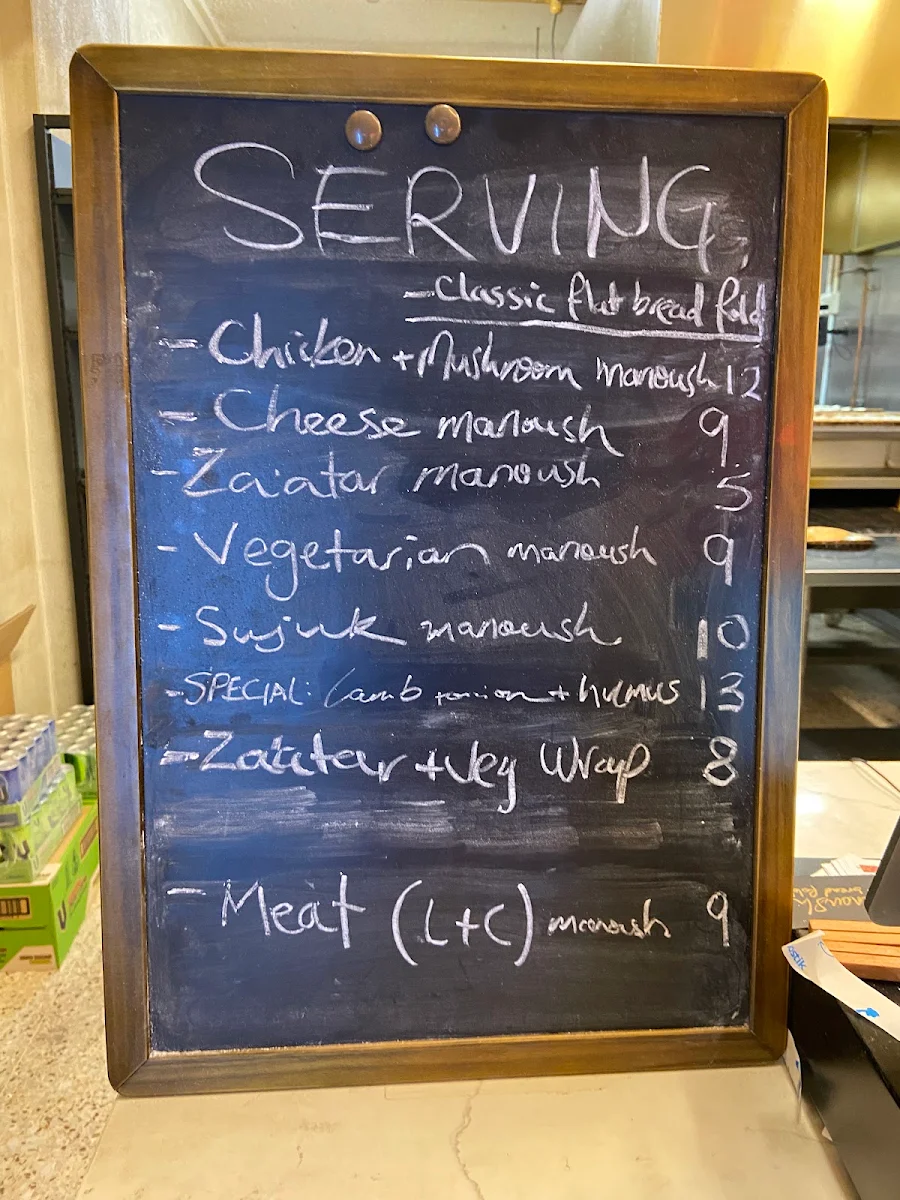 SERVING
- Classic flat bread fold
- Chicken + Mushroom manoush 12
- Cheese manoush 9
- Za'atar manoush 5
- Vegetarian manoush 9
- Sujuk manoush 10
- SPECIAL: Lamb + onion + humus 13
- Za'atar + Veg Wrap 8
- Meat (L+C) manoush 9